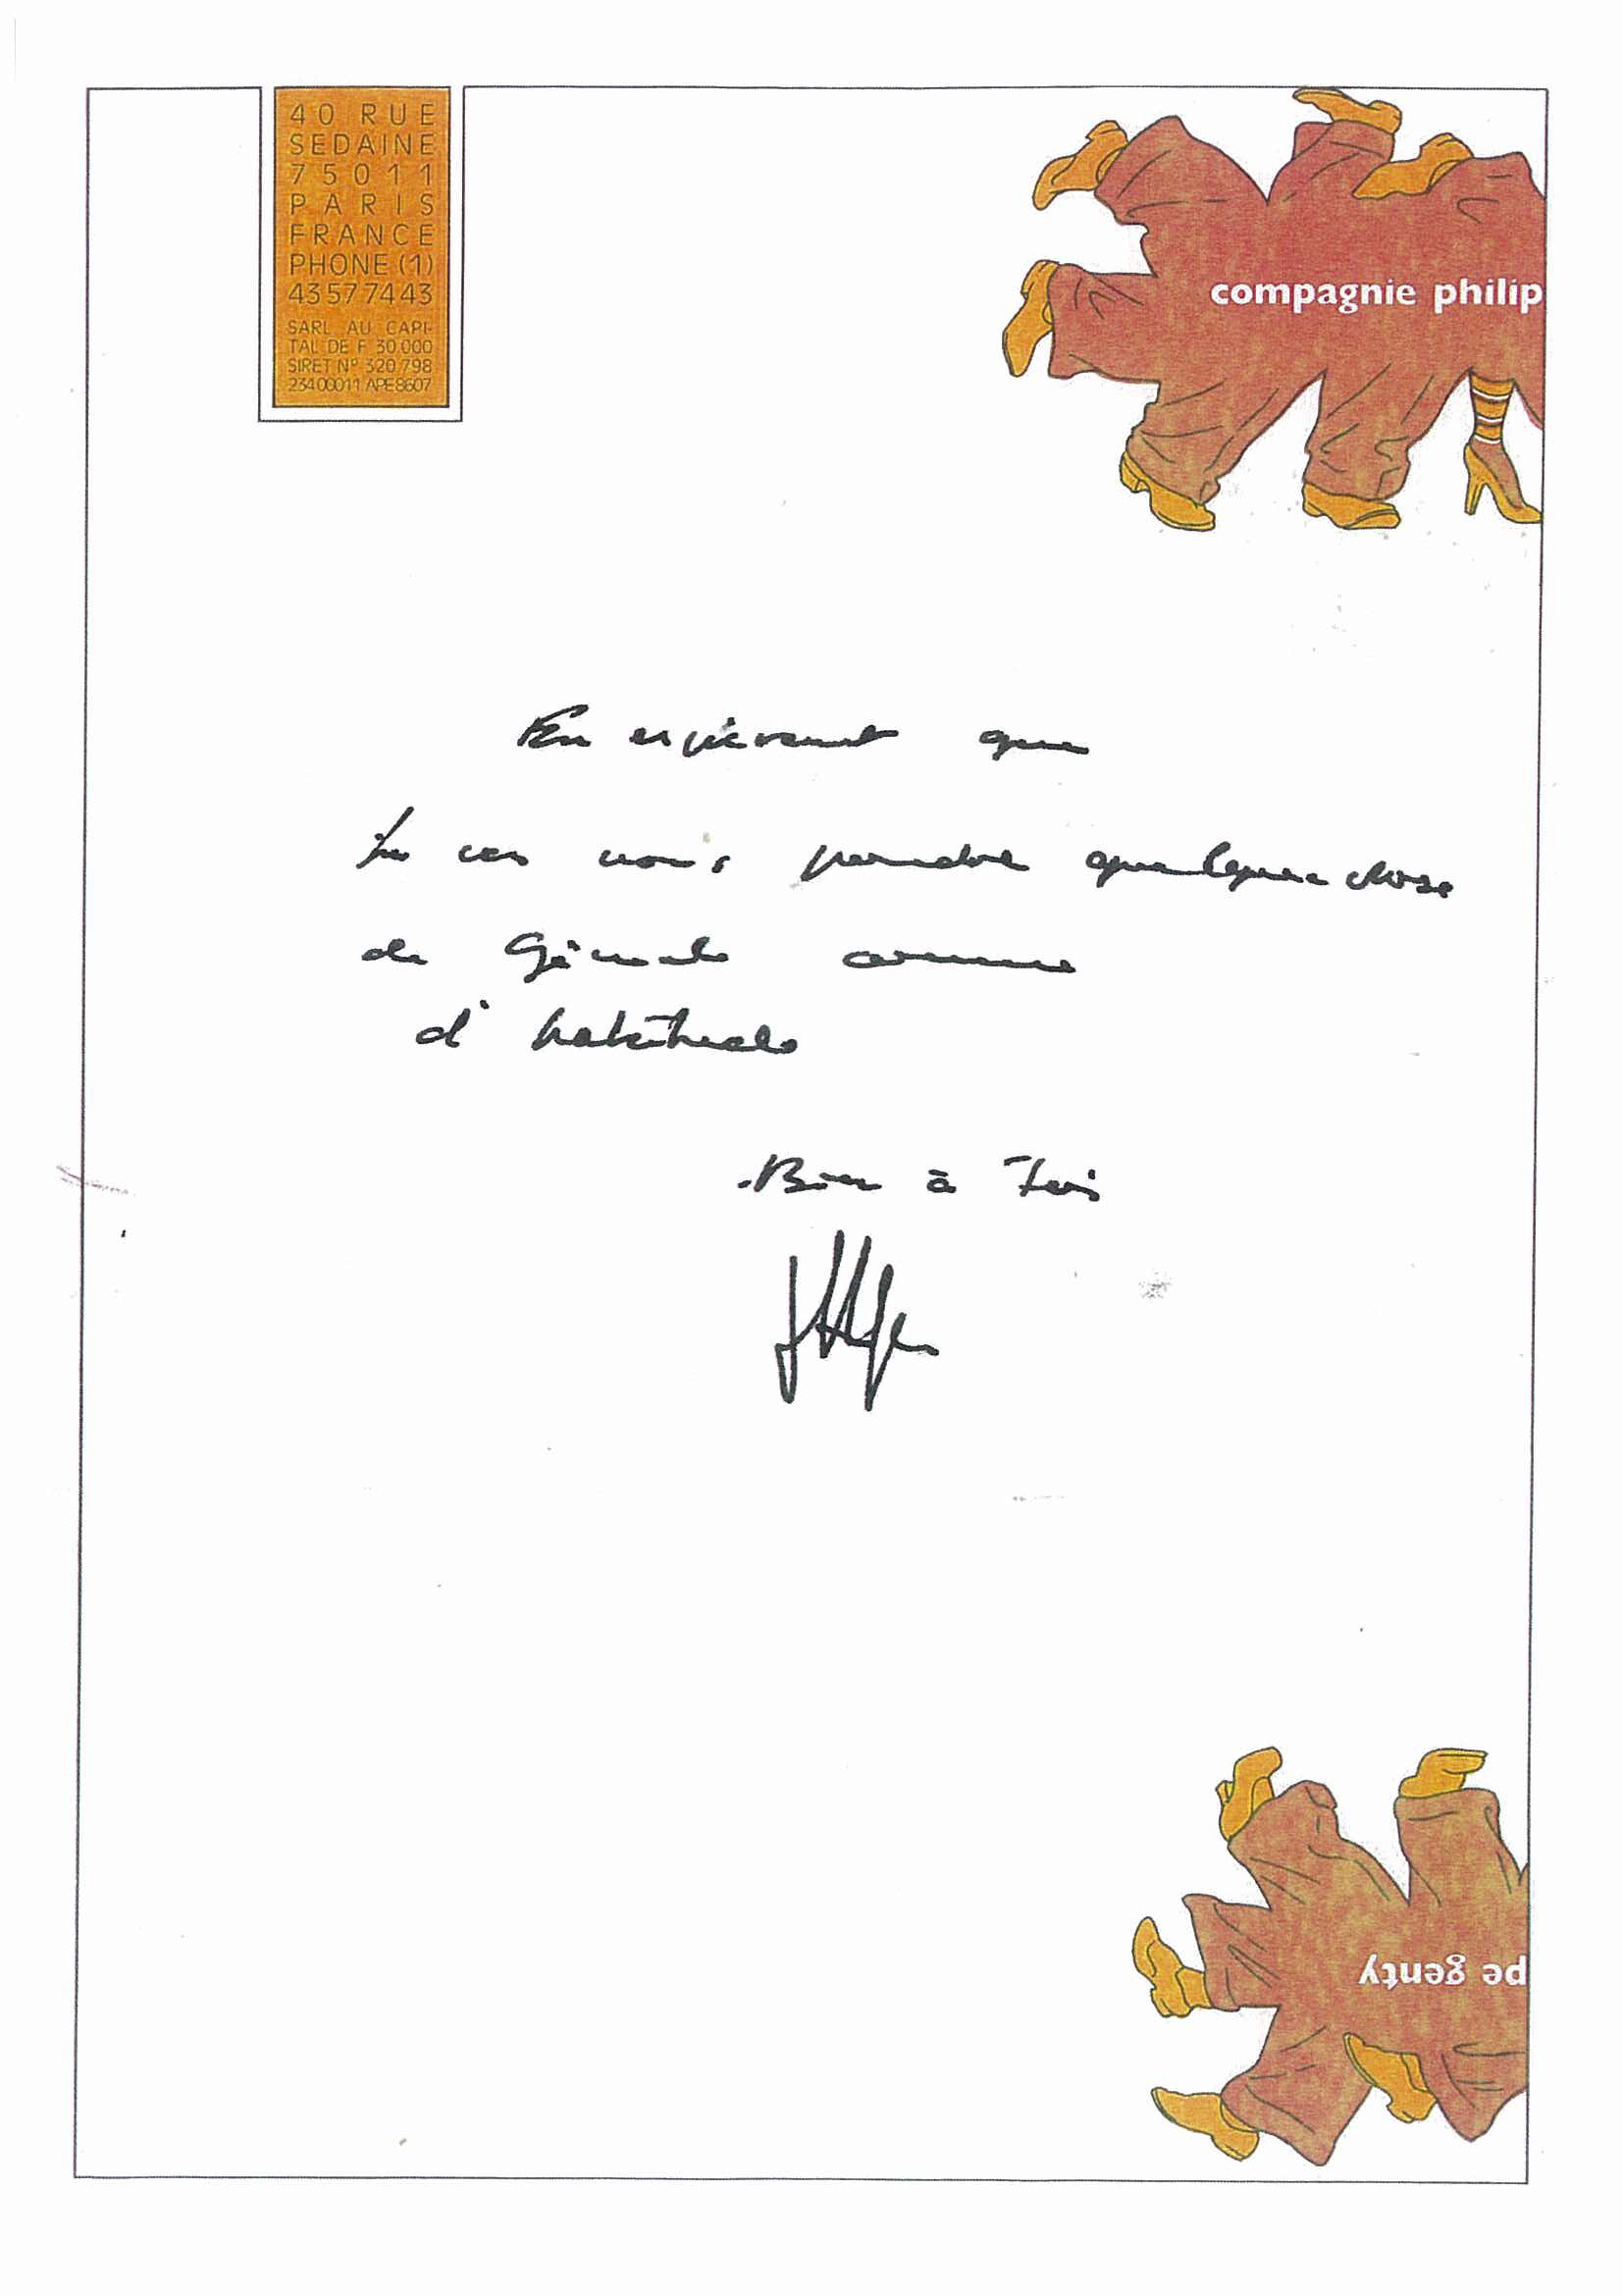 40 RUE
SEDAINE
75011
PARIS
FRANCE
PHONE (1)
43577443
SARL AU CAPI-
TAL DE F 30.000
SIRET Nº 320 798
23400011 APE8607
compagnie philip
En espérant que
tu vas nous pondre quelque chose
de Génial comme
d'habitude
Bien à Toi
pe genty